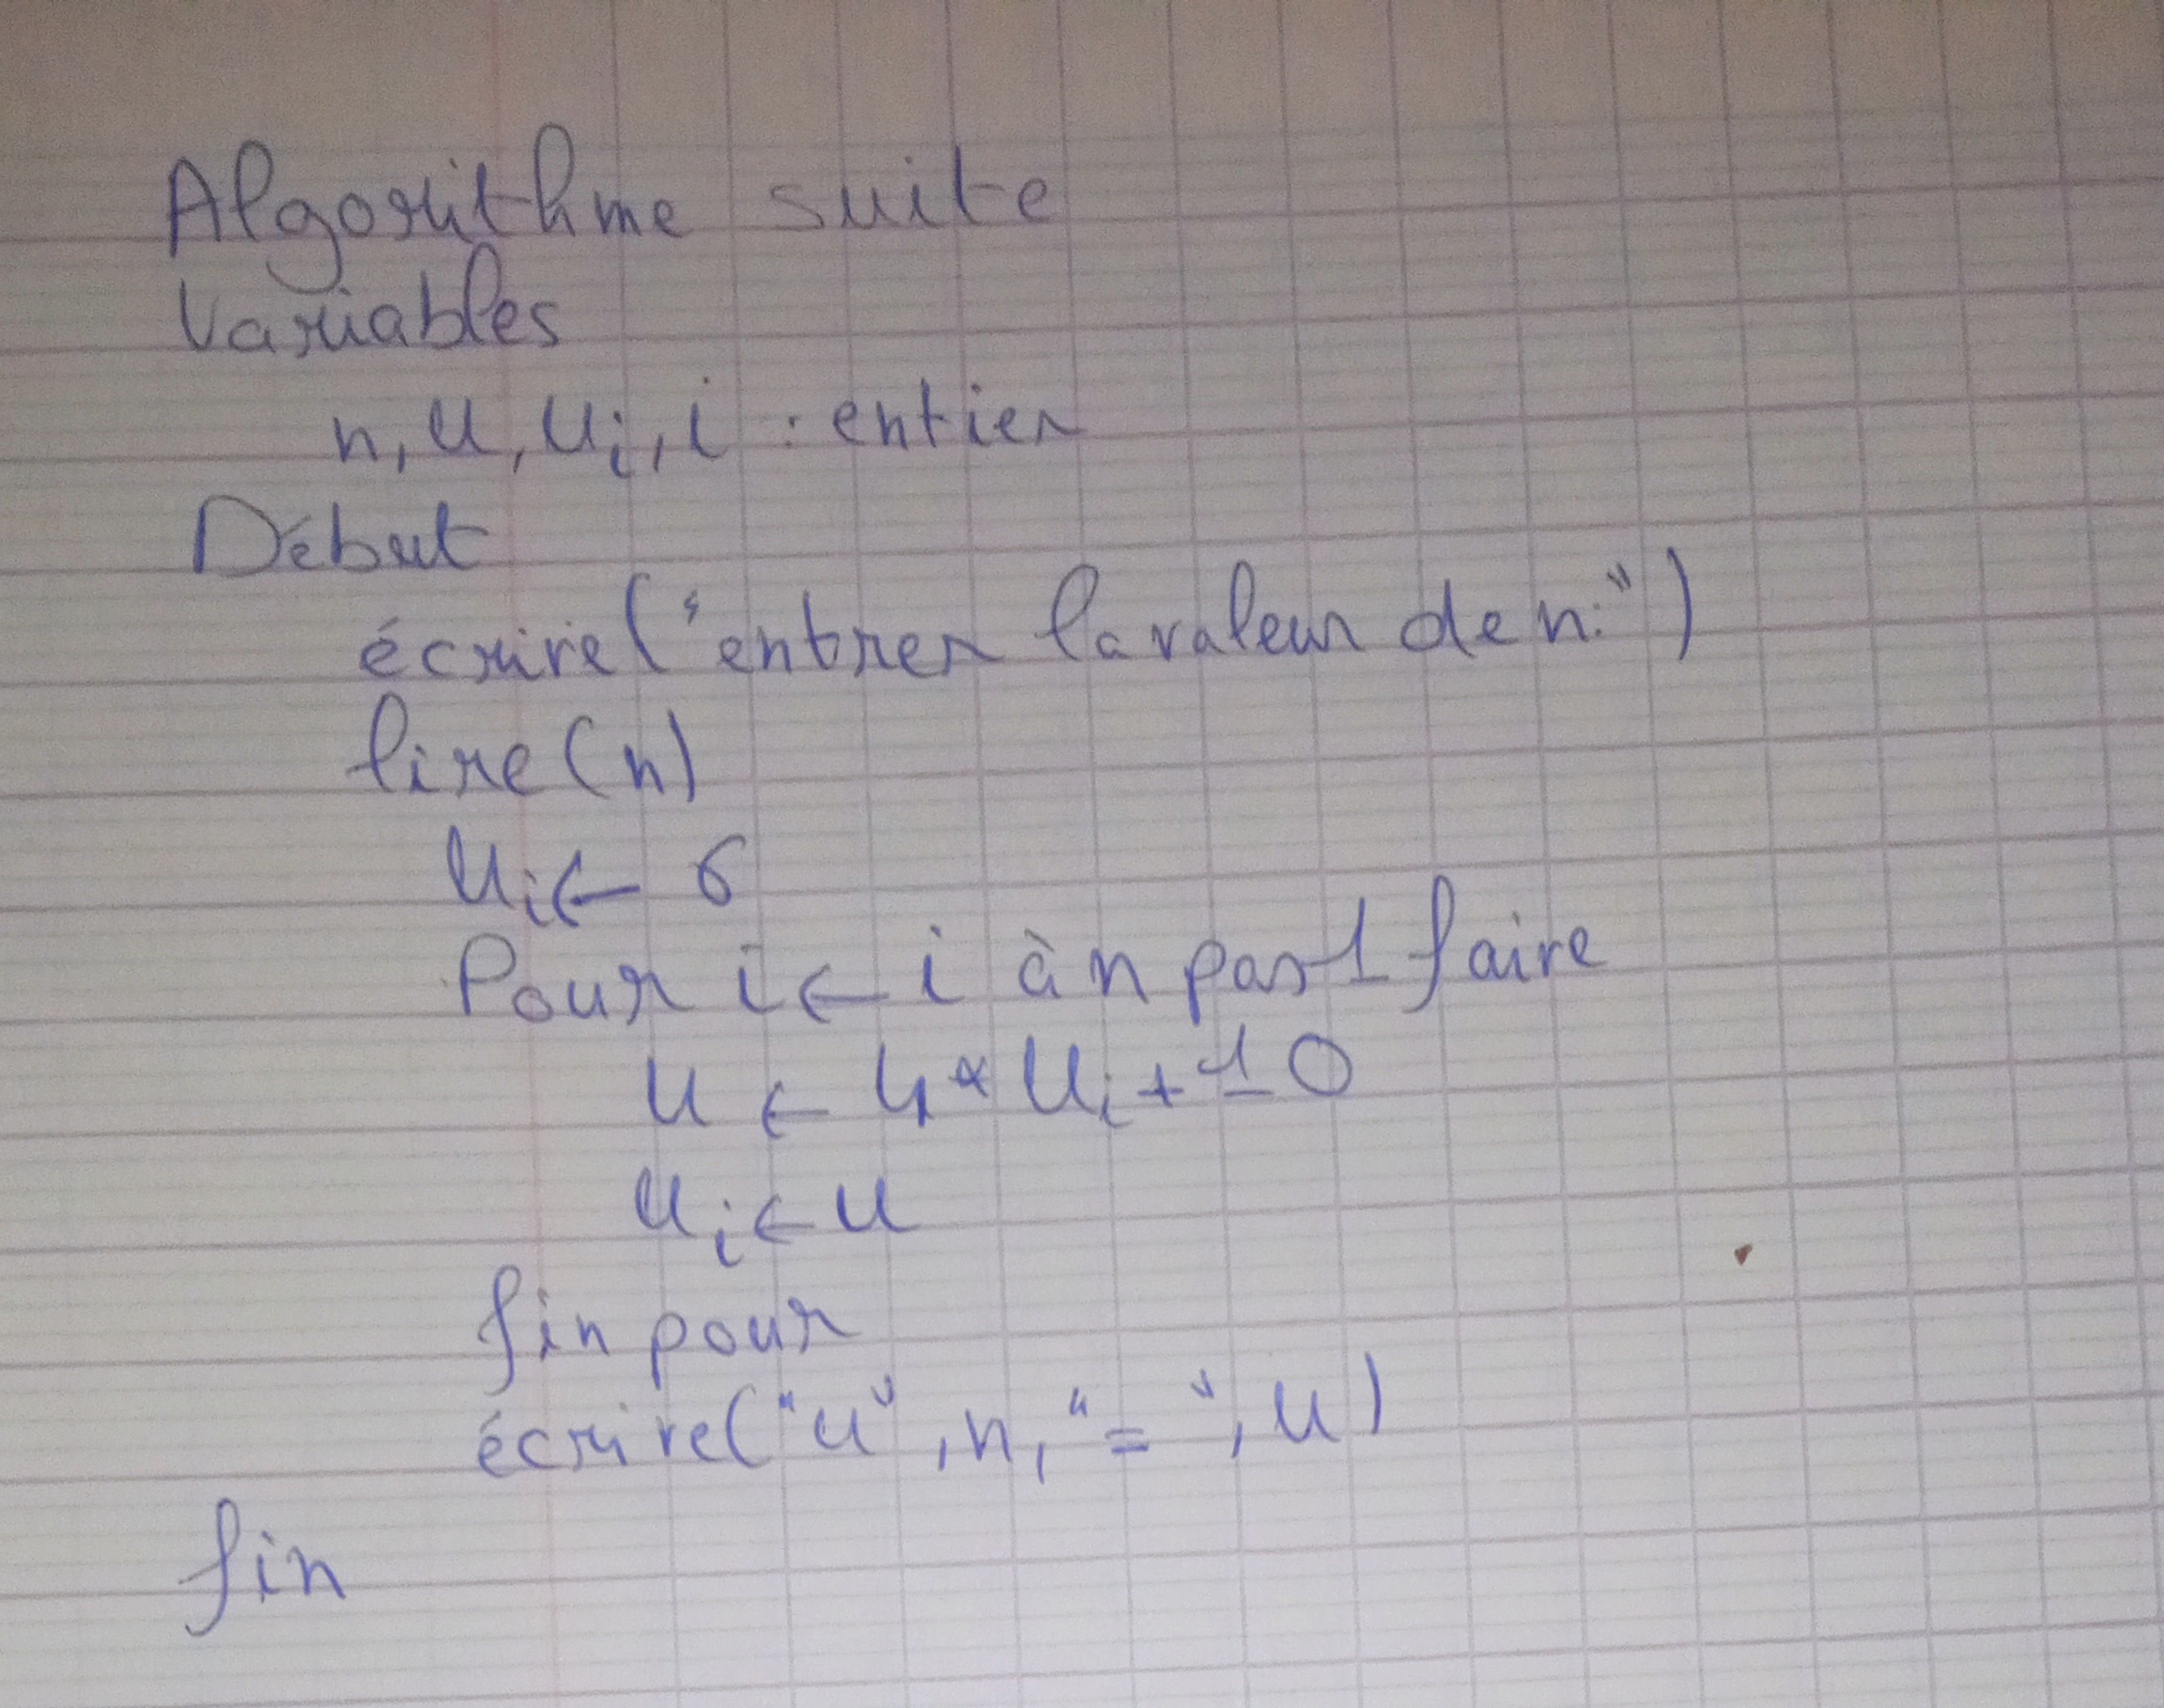 Algorithme suite
Variables
n, u, ui, i : entier
Début
écrire("entrer la valeur de n:")
lire(n)
ui ← 6
Pour i ← i à n pas 1 faire
u ← 4 * ui + 10
ui ← u
fin pour
écrire("u", n, "=", u)
fin